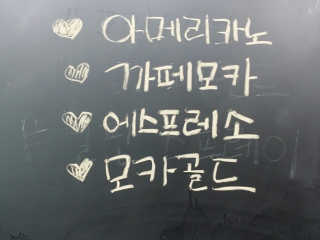 아메리카노
까페모카
에스프레소
모카골드